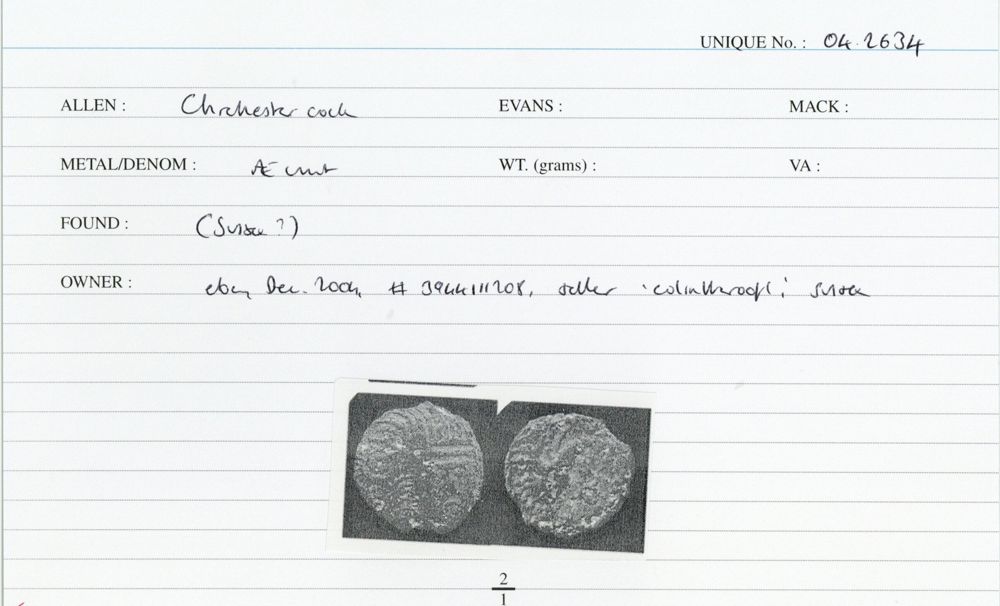 UNIQUE No. : 04.2634
ALLEN : Chichester cock EVANS : MACK :
METAL/DENOM : Æ unit WT. (grams) : VA :
FOUND : (Sussex ?)
OWNER : ebay Dec. 2004, # 3944111208, seller Sussex
2
1